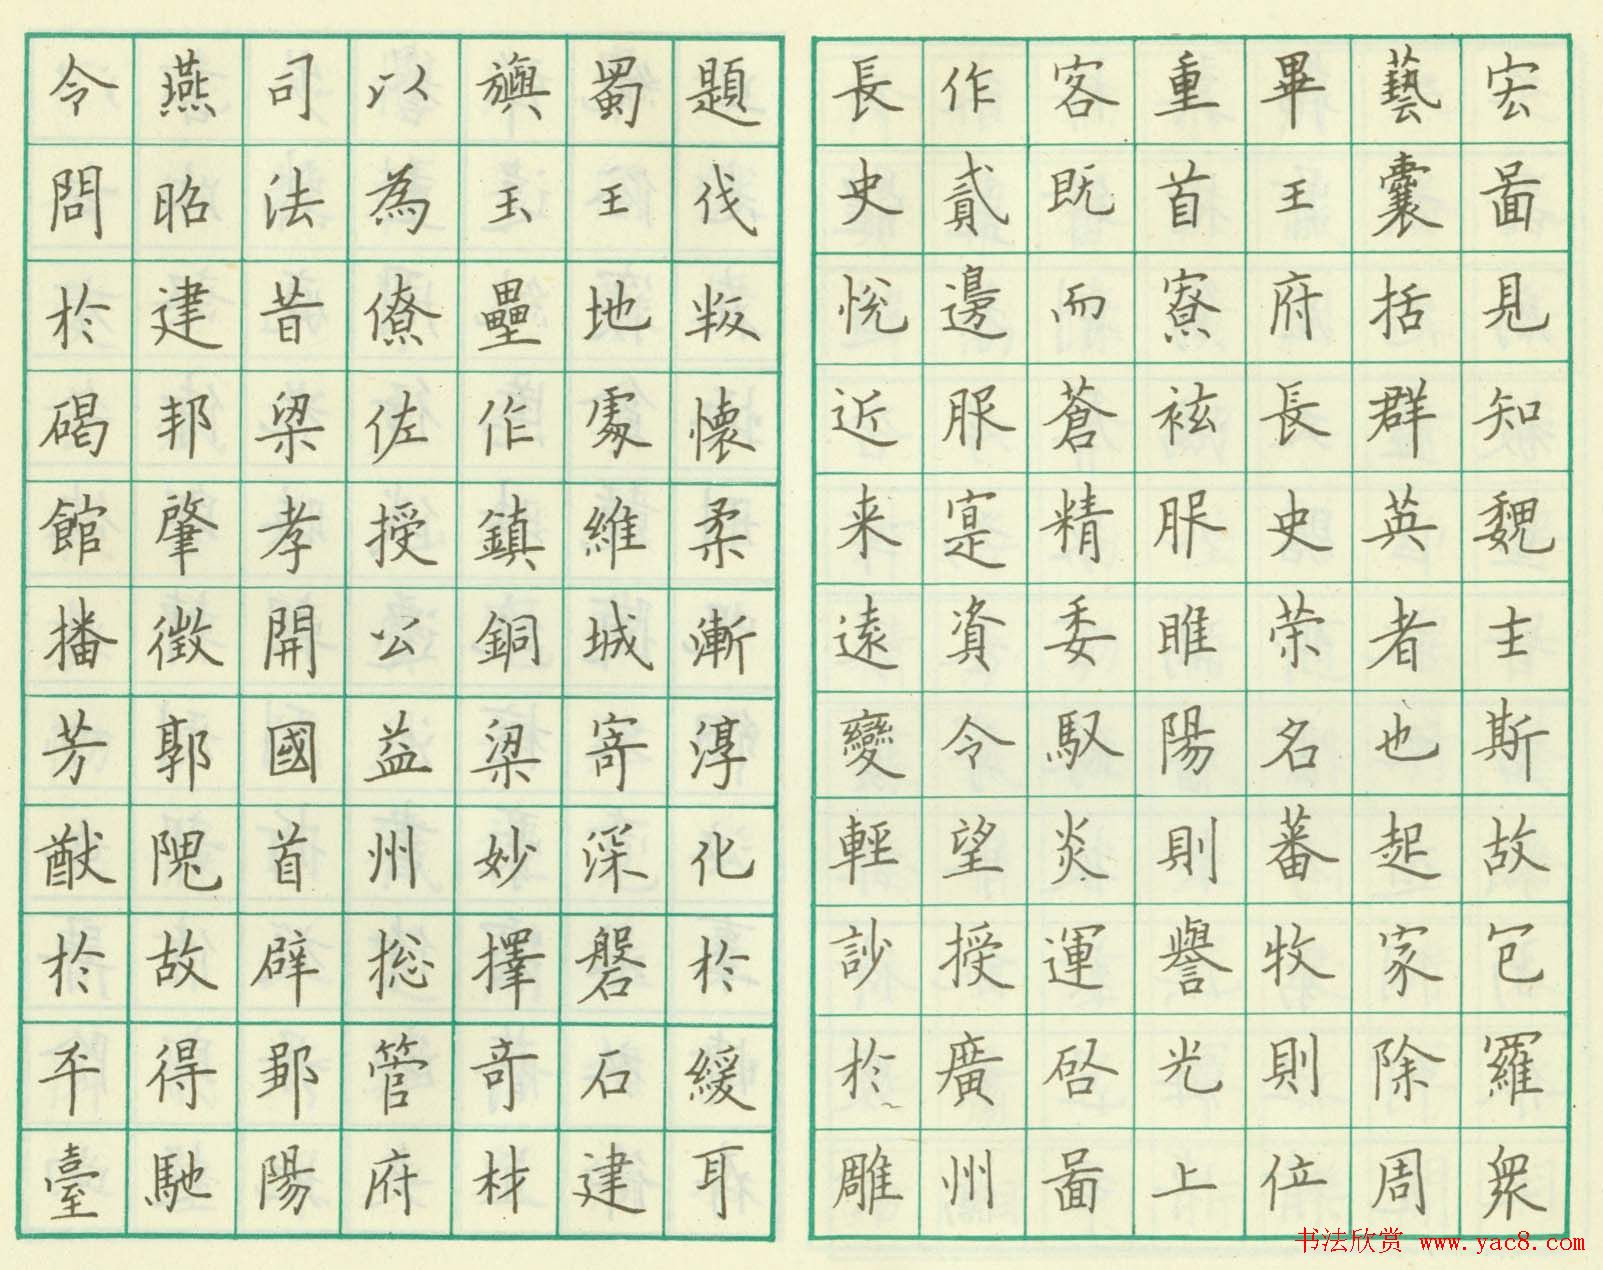 宏啚見知魏主斯故包羅眾
藝囊括群英者也起家除周
畢王府長史荣名蕃牧則位
重首寮袨服睢陽則譽光上
客既而蒼精委馭炎運啓啚
作貳邊服寔資令望授廣州
長史悅近来遠變輕訬於雕
題伐叛懷柔漸淳化於緩耳
蜀王地處維城寄深磐石建
旟玉壘作鎮銅梁妙擇奇材
以為僚佐授公益州総管府
司法昔梁孝開國首辟鄒陽
燕昭建邦肇徴郭隗故得馳
令問於碣館播芳猷於平臺
书法欣赏 www.yac8.com